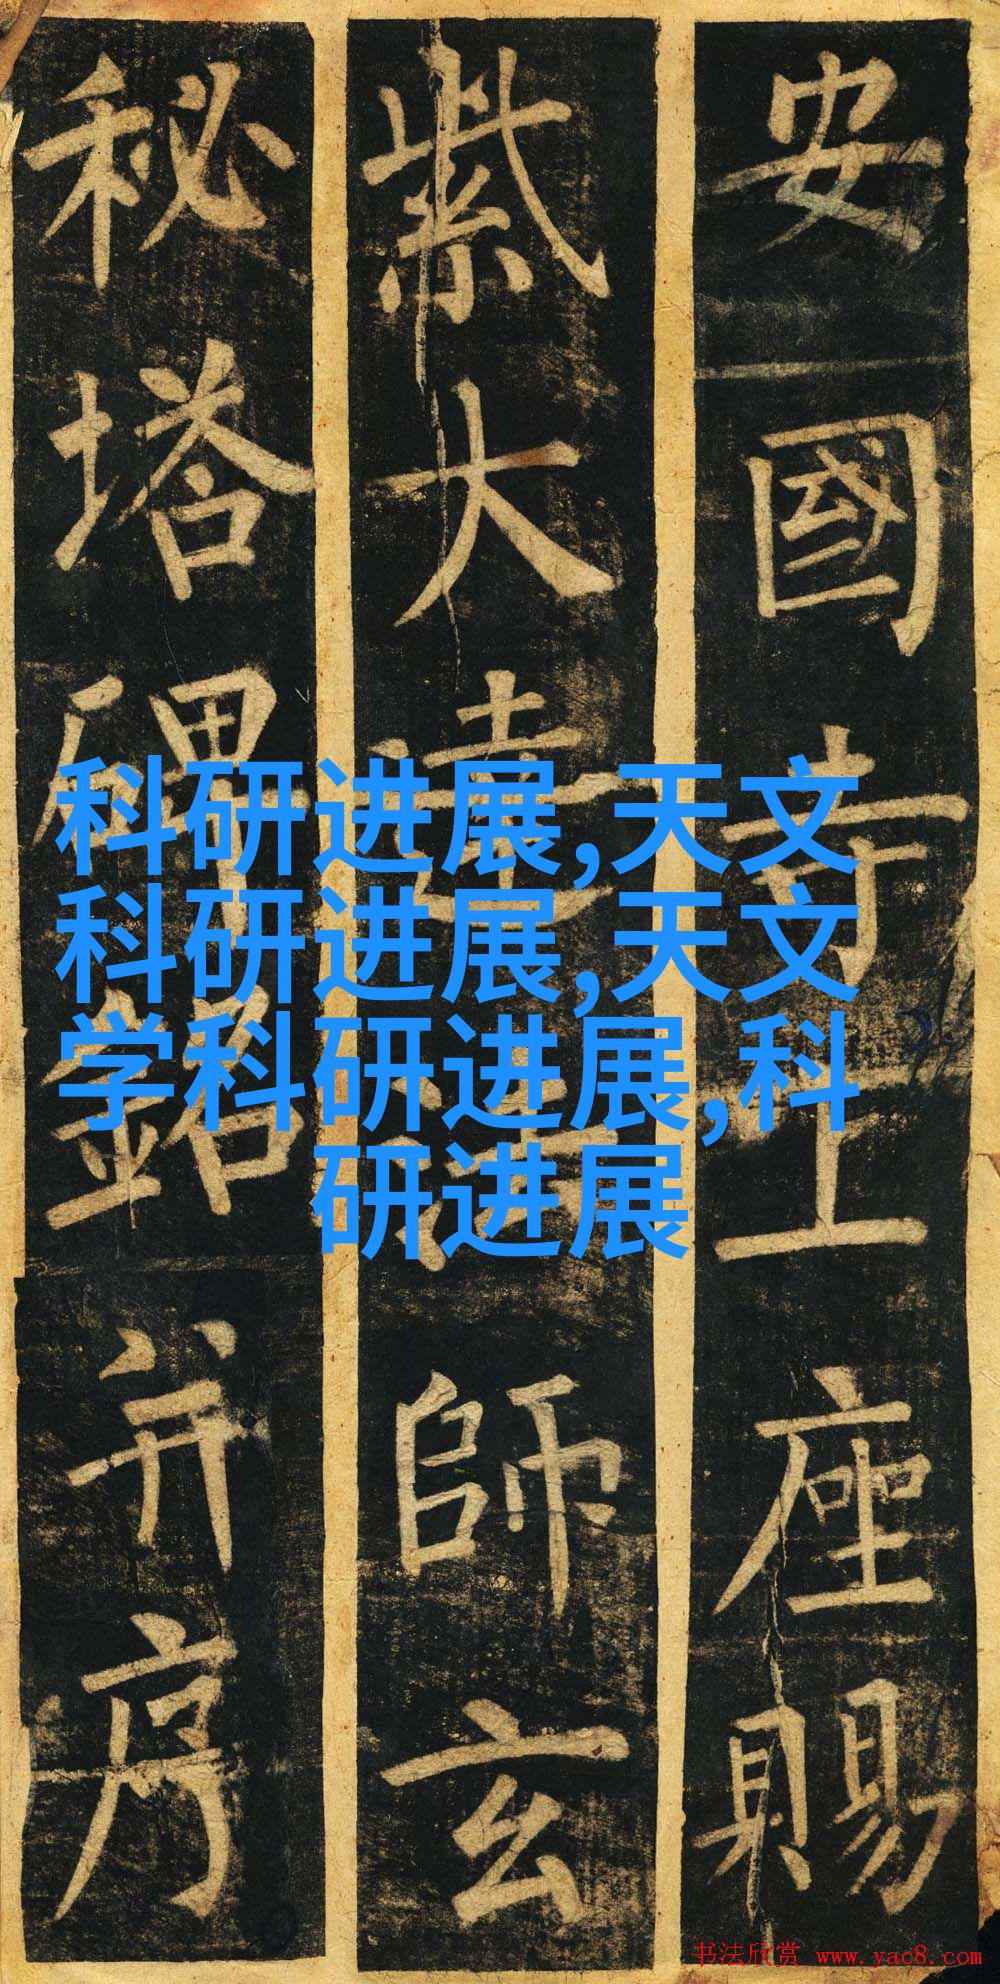 安國寺上座賜
紫大達法師玄
秘塔碑銘并序
科研进展,天文
科研进展,天文
学科研进展,科
研进展
书法欣赏 www.yac8.com